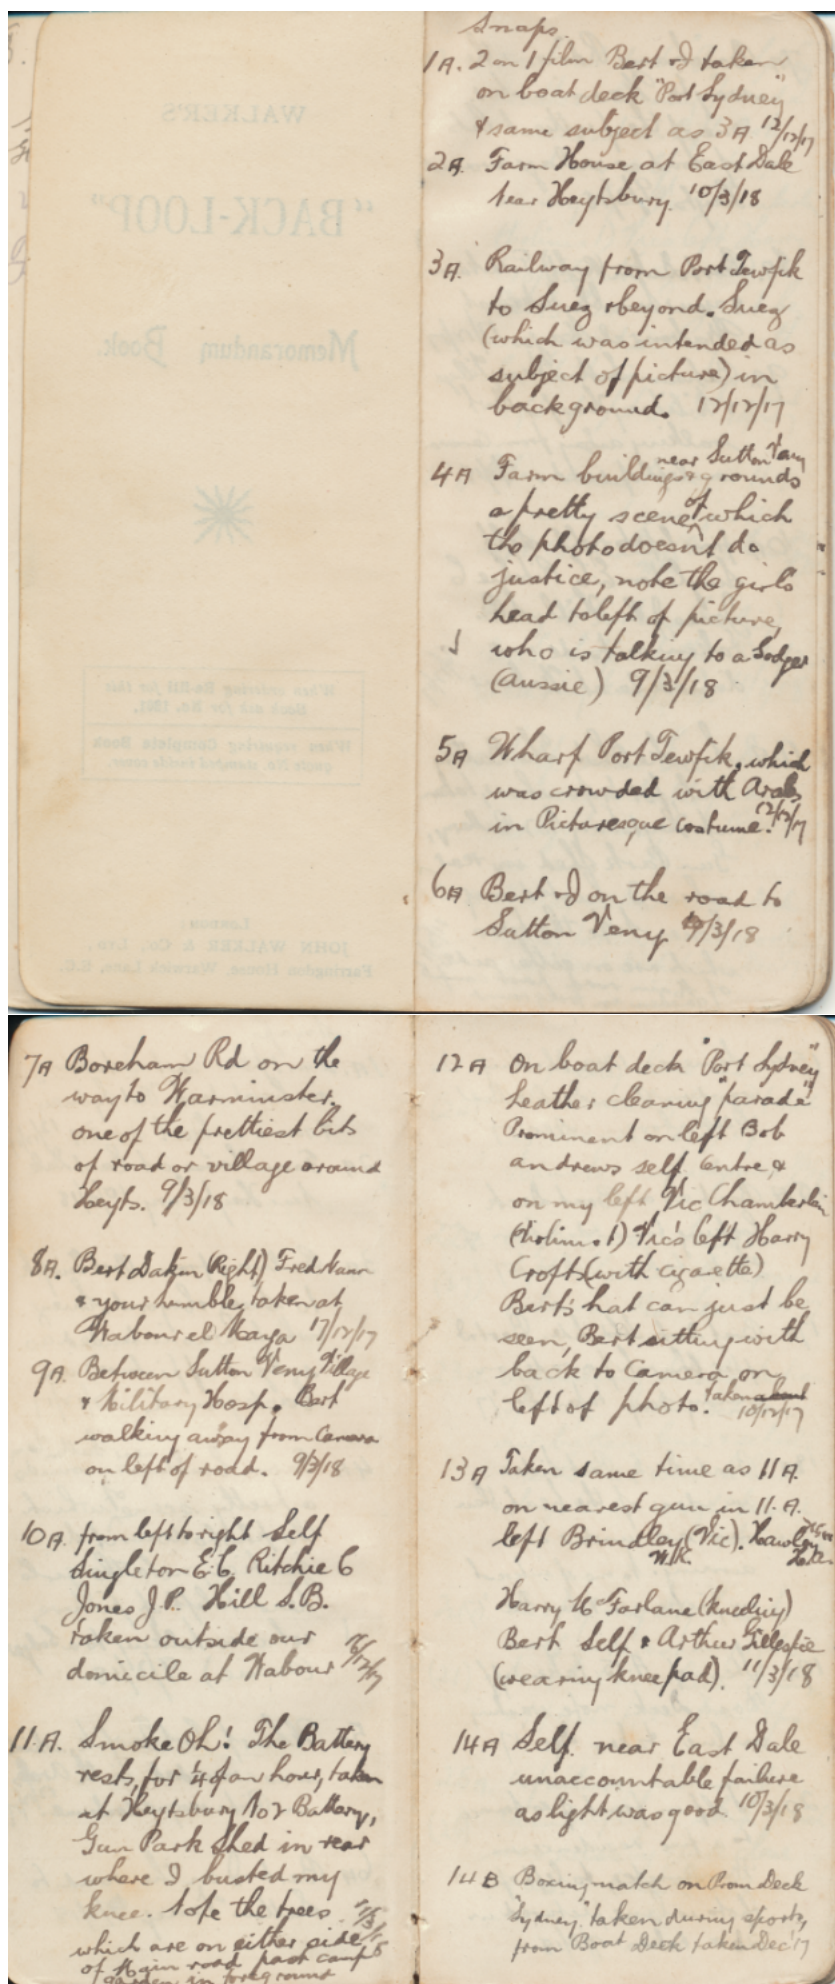 WALKER'S
"BACK-LOOP"
Memorandum Book
When ordering Re-fill for this
Book ask for No.
When requiring Complete Book
quote No. stamped inside cover
London
JOHN WALKER & Co., Ltd.,
Farringdon House, Warwick Lane, E.C.
Snaps.
1A. 2 on 1 film Bert & I taken
on boat deck "Port Sydney"
& same subject as 3A 12/12/17
2A. Farm House at East Dale
near Heytsbury. 10/3/18
3A. Railway from Port Tewfik
to Suez & beyond. Suez
(which was intended as
subject of picture) in
background. 12/12/17
near Sutton Veny
4A Farm buildings & grounds
a pretty scene of which
the photo doesn't do
justice, note the girls
head to left of picture,
who is talking to a Sodger
(Aussie) 9/3/18
5A Wharf Port Tewfik, which
was crowded with Arabs
in Picturesque costume. 12/12/17
6A Bert & I on the road to
Sutton Veny 9/3/18
7A Boreham Rd on the
way to Warminster,
one of the prettiest bits
of road or village around
Heyts. 9/3/18
8A. Bert Dakin (Right) Fred
& your humble, taken at
Habour el Maga 17/12/17
9A. Between Sutton Veny Village
& Military Hosp. Bert
walking away from Camera
on left of road. 9/3/18
10A. from left to right Self
Singleton E.C. Ritchie C
Jones J.P. Hill S.B.
taken outside our
domicile at Habour 16/12/17
11.A. Smoke Oh! The Battery
rests, for 1/4 of an hour, taken
at Heytsbury No 2 Battery,
Gun Park Shed in rear
where I busted my
knee. Note the trees 11/3/18
which are on either side
of Main road past camp
garden in foreground
12A On boat deck "Port Sydney"
heather cleaning "parade"
Prominent on left Bob
Andrews self centre &
on my left Vic Chamberlin
Vic's left Harry
Croft (with cigarette)
Bert's hat can just be
seen, Bert sitting with
back to Camera on
left of photo. Taken about
10/12/17
13A Taken same time as 11A.
on nearest gun in 11.A.
left Brindley (Vic). Hawley
W.R.
Harry McFarlane (kneeling)
Bert Self & Arthur Gillespie
(wearing knee pad). 11/3/18
14A Self near East Dale
unaccountable failure
as light was good. 10/3/18
14B Boxing match on Prom Deck
"Sydney" taken during sports,
from Boat Deck taken Dec 17